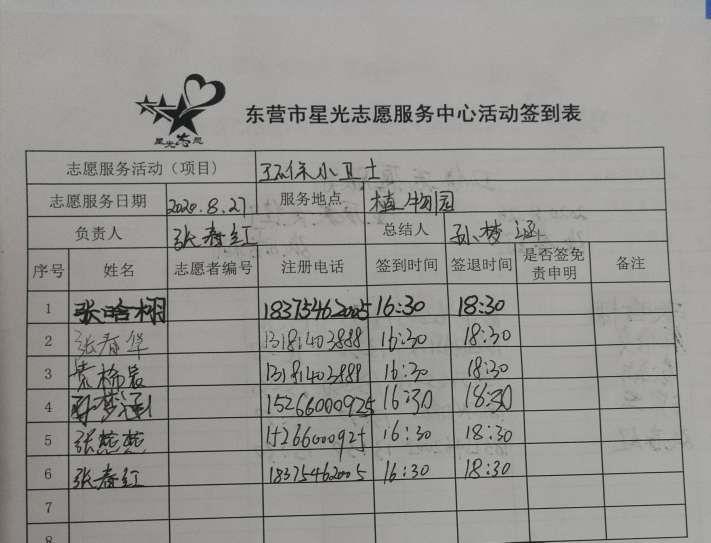 星光志愿
东营市星光志愿服务中心活动签到表
志愿服务活动（项目） 环保小卫士
志愿服务日期 2020.8.27 服务地点 植物园
负责人 张春红 总结人 孙梦涵
序号 姓名 志愿者编号 注册电话 签到时间 签退时间 是否签免责申明 备注
1 张晗栩 18375462005 16:30 18:30
2 张春华 13181403888 16:30 18:30
3 13181403889 16:30 18:30
4 孙梦涵 15266000925 16:30 18:30
5 张燕燕 15266000925 16:30 18:30
6 张春红 18375462005 16:30 18:30
7
8